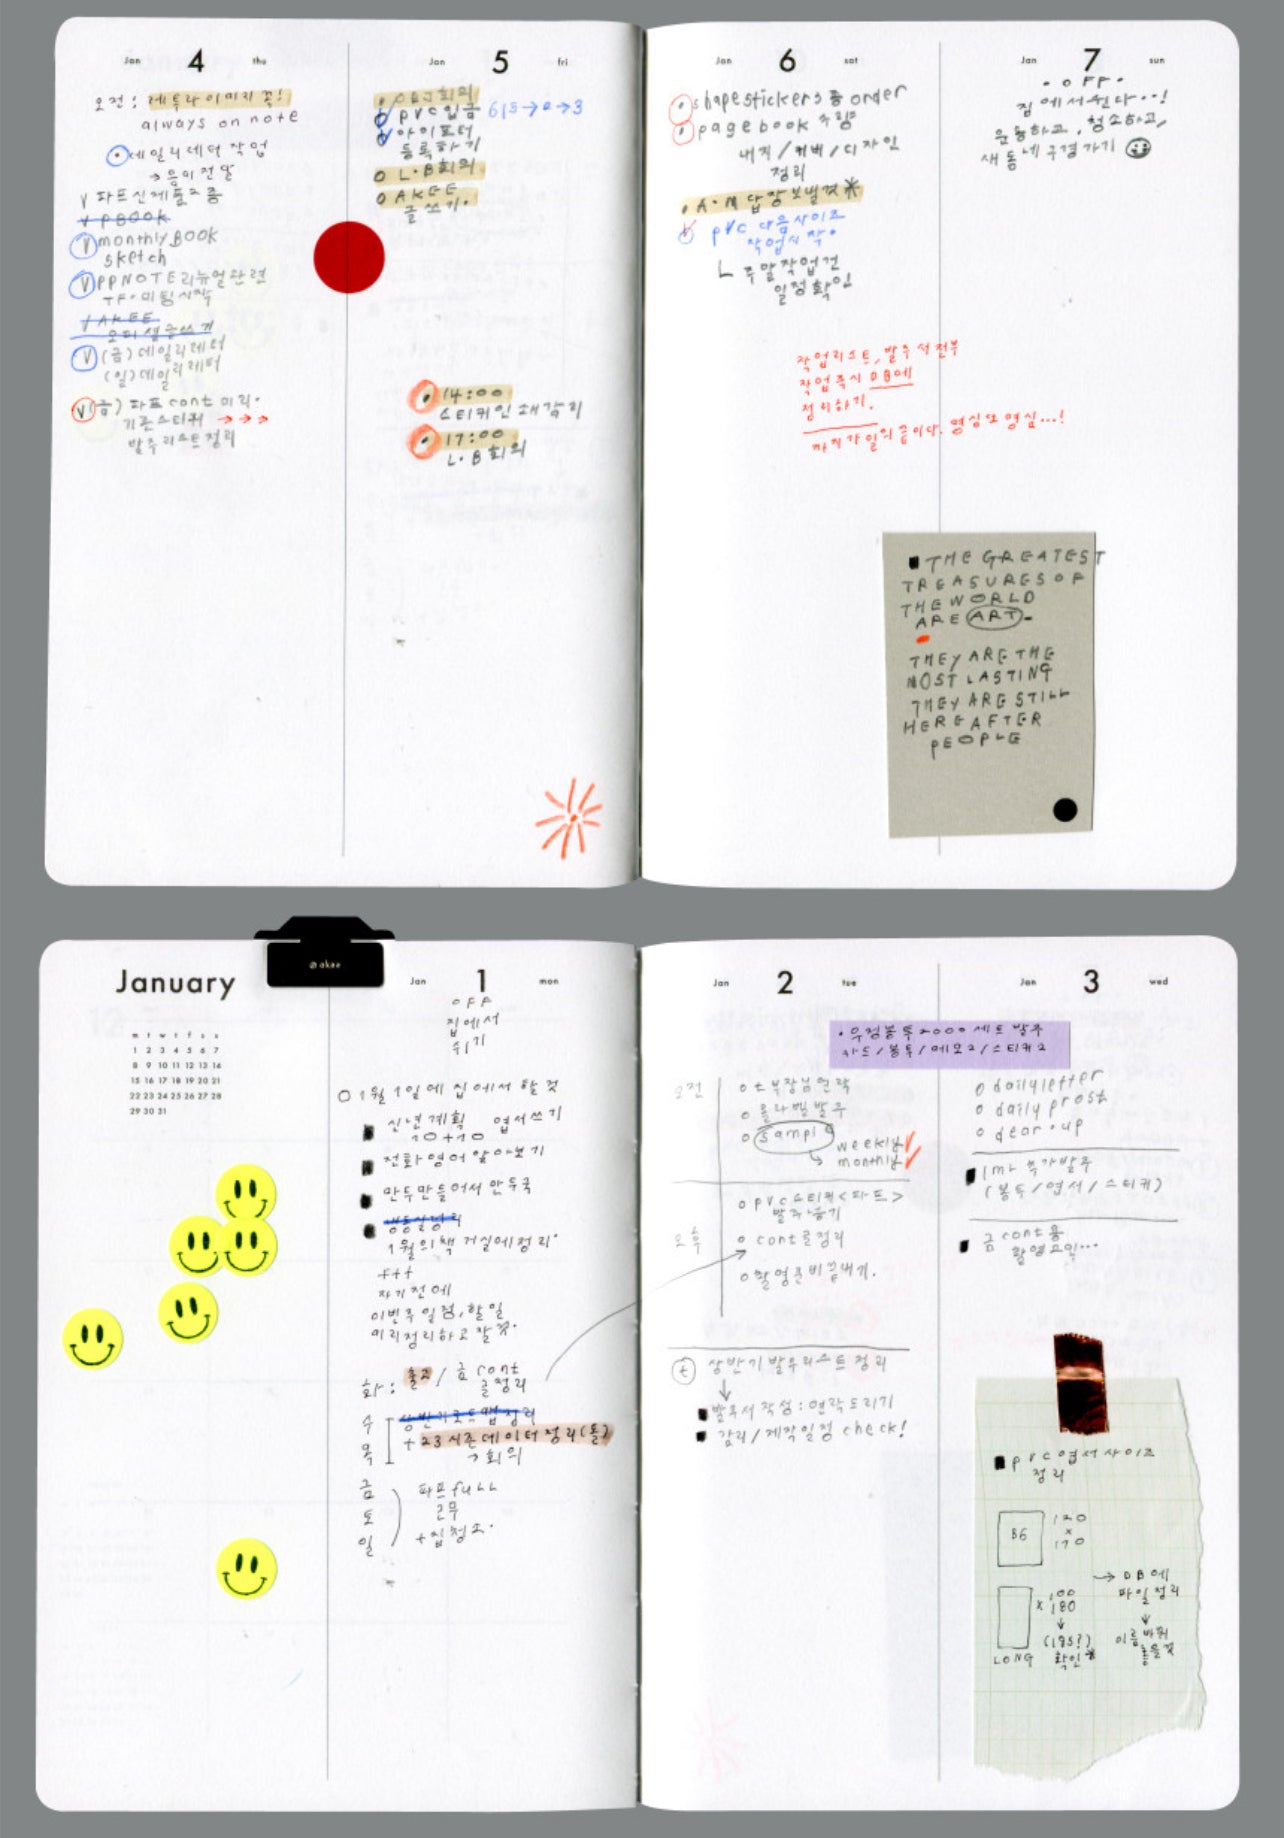 Jan 4 thu
오전: 레투라 이미지 꼭!
always on note
데일리레터 작업
→ 음미전달
v 파프신제품 2종
v PBOOK
v monthly BOOK
sketch
v PPNOTE 리뉴얼관련
TF·미팅시작
v AKEE
오피셜글쓰기
v (금) 데일리레터
(일) 데일리레터
v (금) 파프 cont 미리·
기존스티커 → → →
발주리스트정리
Jan 5 fri
OBJ 회의
PVC 입금 6|5→2→3
등록하기
L·B 회의
AKEE
글쓰기·
14:00
스티커인쇄감리
17:00
L·B 회의
Jan 6 sat
shapestickers 종 order
pagebook 수량
내지/커버/디자인
정리
A·M 답장보낼것*
PVC 다음사이즈
작업시작·
ㄴ 주말작업건
일정확인
작업리스트, 발주서전부
작업즉시 DB에
정리하기.
까지가 일의 끝이다. 명심또명심...!
Jan 7 sun
·OFF·
집에서쉰다··!
운동하고, 청소하고,
새동네구경가기
THE GREATEST
TREASURES OF
THE WORLD
ARE ART-
THEY ARE THE
MOST LASTING
THEY ARE STILL
HERE AFTER
PEOPLE
January
@akee
m t w t f s s
1 2 3 4 5 6 7
8 9 10 11 12 13 14
15 16 17 18 19 20 21
22 23 24 25 26 27 28
29 30 31
Jan 1 mon
OFF
집에서
쉬기
O 1월 1일에 집에서 할 것
신년계획 엽서쓰기
10+10
전화영어 알아보기
만두만들어서 만두국
냉동실정리
1월의책 거실에정리·
자기전에
이번주일정, 할일
미리정리하고 잘것·
화: 출고 / 금 cont
글정리
수
목
상반기로드맵정리
+23시즌데이터정리(돌)
회의
금
토
일
파프 full
근무
+집청소·
Jan 2 tue
·우정봉투 2000세트 발주
카드/봉투/메모2/스티커2
오전
o t부장님연락
o 몰나벵발주
o sample
↳ weekly
monthly
o PVC스티커<파트>
발주넣기
오후
o cont글정리
o 촬영준비끝내기.
t 상반기발주리스트정리
↓
발주서작성: 연락드리기
감리/제작일정 check!
Jan 3 wed
o dailyletter
o daily prost
o dear·up
1mm 추가발주
(봉투/엽서/스티커)
금 cont용
촬영고민···
PVC엽서사이즈
정리
B6
120
x
170
→ DB에
파일정리
↓
이름바꿔
놓을것
100
x 180
↓
(185?)
확인*
LONG